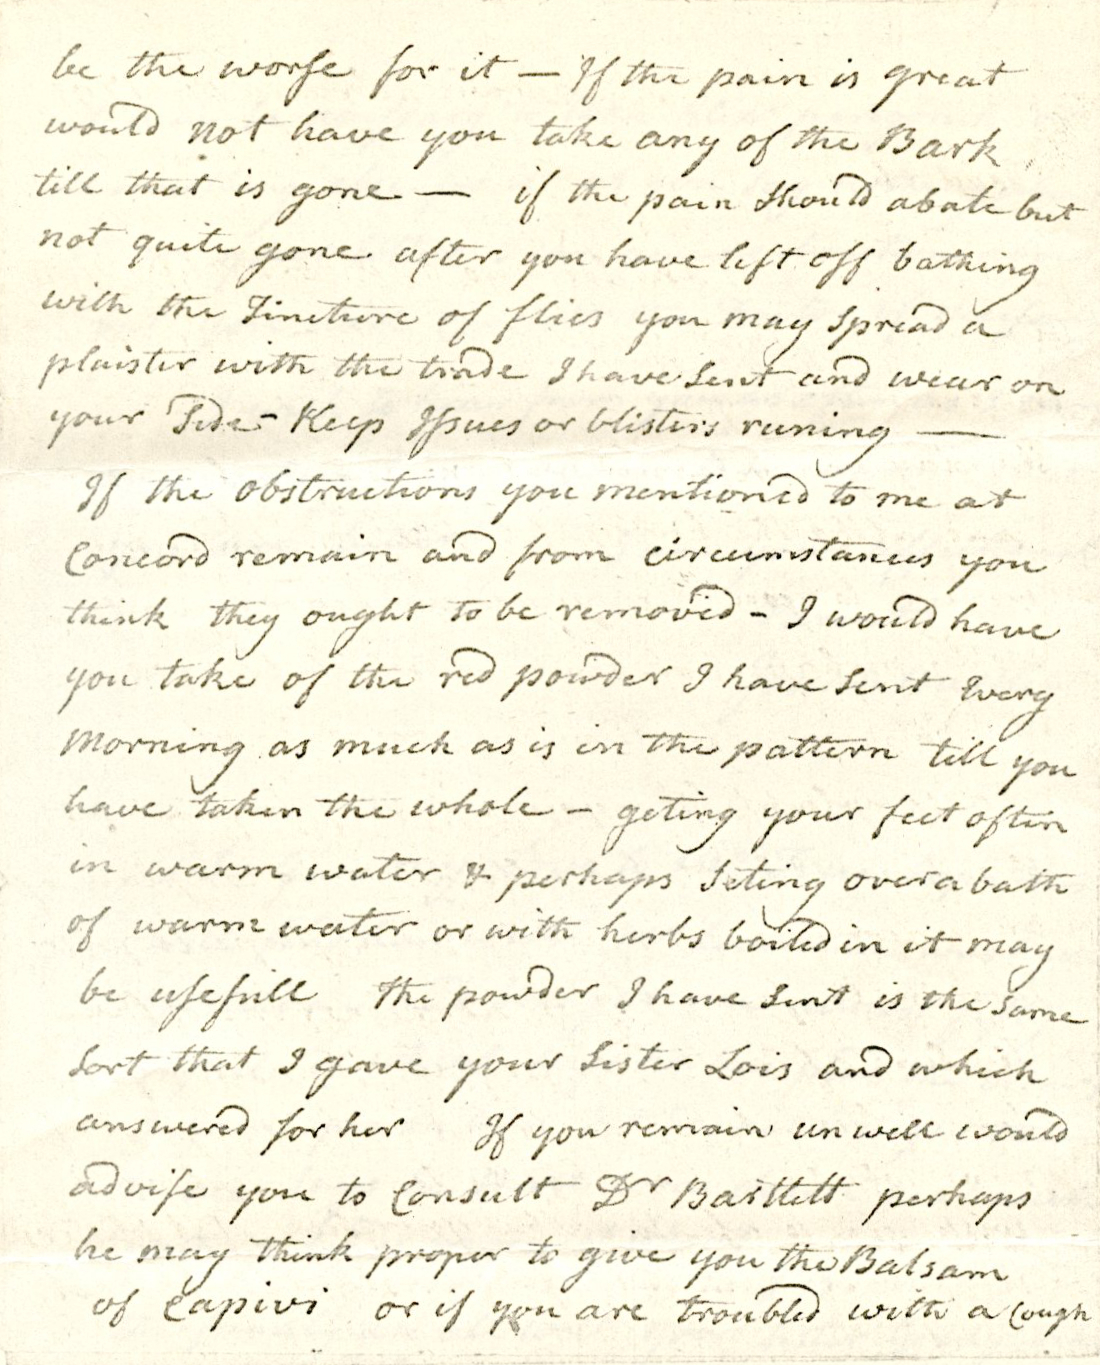 be the worse for it — If the pain is great
would not have you take any of the Bark
till that is gone — if the pain Should abate but
not quite gone after you have left off bathing
with the Tincture of flies you may Spread a
plaister with the trade I have Sent and wear on
your Side - Keep Issues or blisters runing —
If the obstructions you mentioned to me at
Concord remain and from circumstances you
think they ought to be removed - I would have
you take of the red powder I have Sent Every
Morning as much as is in the pattern till you
have taken the whole - geting your feet often
in warm water & perhaps Seting over a bath
of warm water or with herbs boiled in it may
be usefull the powder I have Sent is the Same
Sort that I gave your Sister Lois and which
answered for her If you remain unwell would
advise you to Consult Dr Bartlett perhaps
he may think proper to give you the Balsam
of Capivi or if you are troubled with a Cough